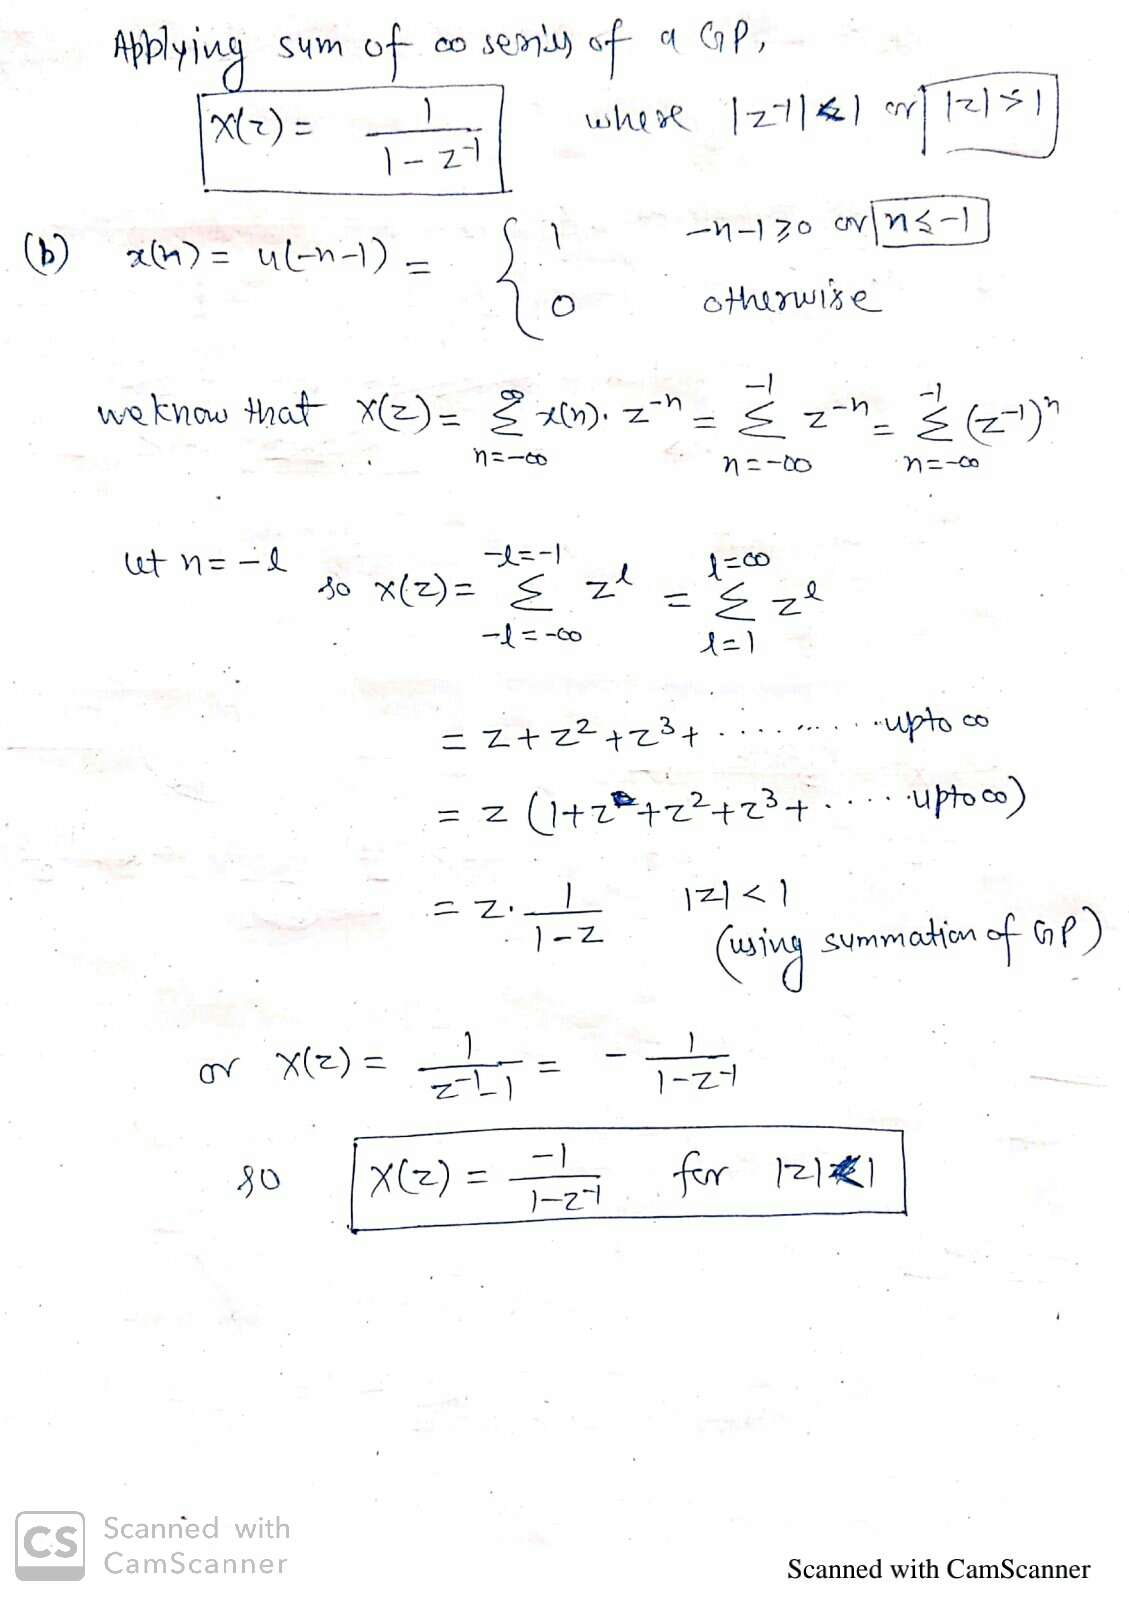 Applying sum of ∞ series of a GP,
X(z) = 1/(1 - z⁻¹) where |z⁻¹| < 1 or |z| > 1
(b) x(n) = u(-n-1) = { 1 -n-1≥0 or n≤-1
0 otherwise
we know that X(z) = Σ_{n=-∞}^{∞} x(n). z⁻ⁿ = Σ_{n=-∞}^{-1} z⁻ⁿ = Σ_{n=-∞}^{-1} (z⁻¹)ⁿ
let n = -l so X(z) = Σ_{-l=-∞}^{-l=-1} z^l = Σ_{l=1}^{l=∞} z^l
= z + z² + z³ + .......... upto ∞
= z (1 + z + z² + z³ + ...... upto ∞)
= z. 1/(1-z) |z| < 1
(using summation of GP)
or X(z) = 1/(z⁻¹ - 1) = - 1/(1 - z⁻¹)
so X(z) = -1/(1 - z⁻¹) for |z| < 1
CS Scanned with
CamScanner
Scanned with CamScanner